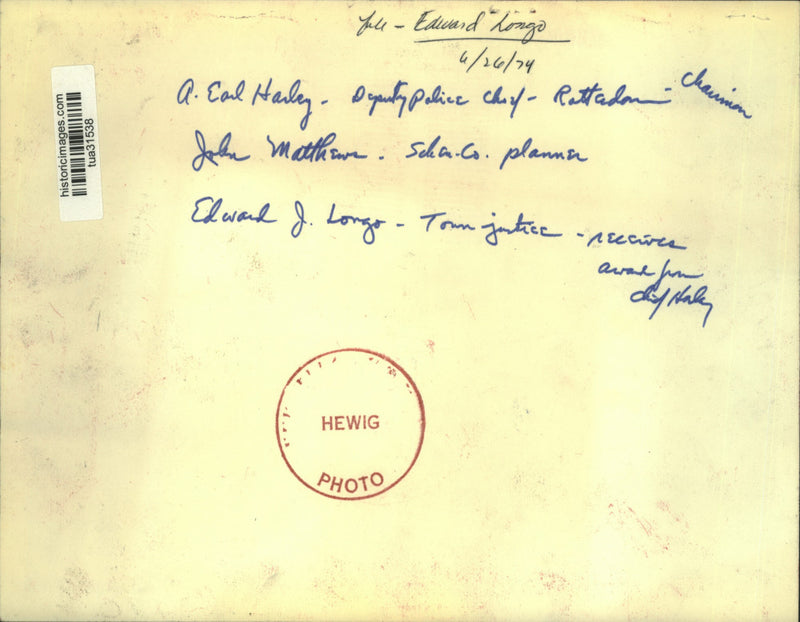 File - Edward Longo
6/26/74
A. Earl Harley - Deputy Police Chief - Rotterdam - Chairman
John Matthews - Schen. Co. planner
Edward J. Longo - Town justice - receives
award from
chief Harley
historicimages.com
tua31538
HEWIG
PHOTO